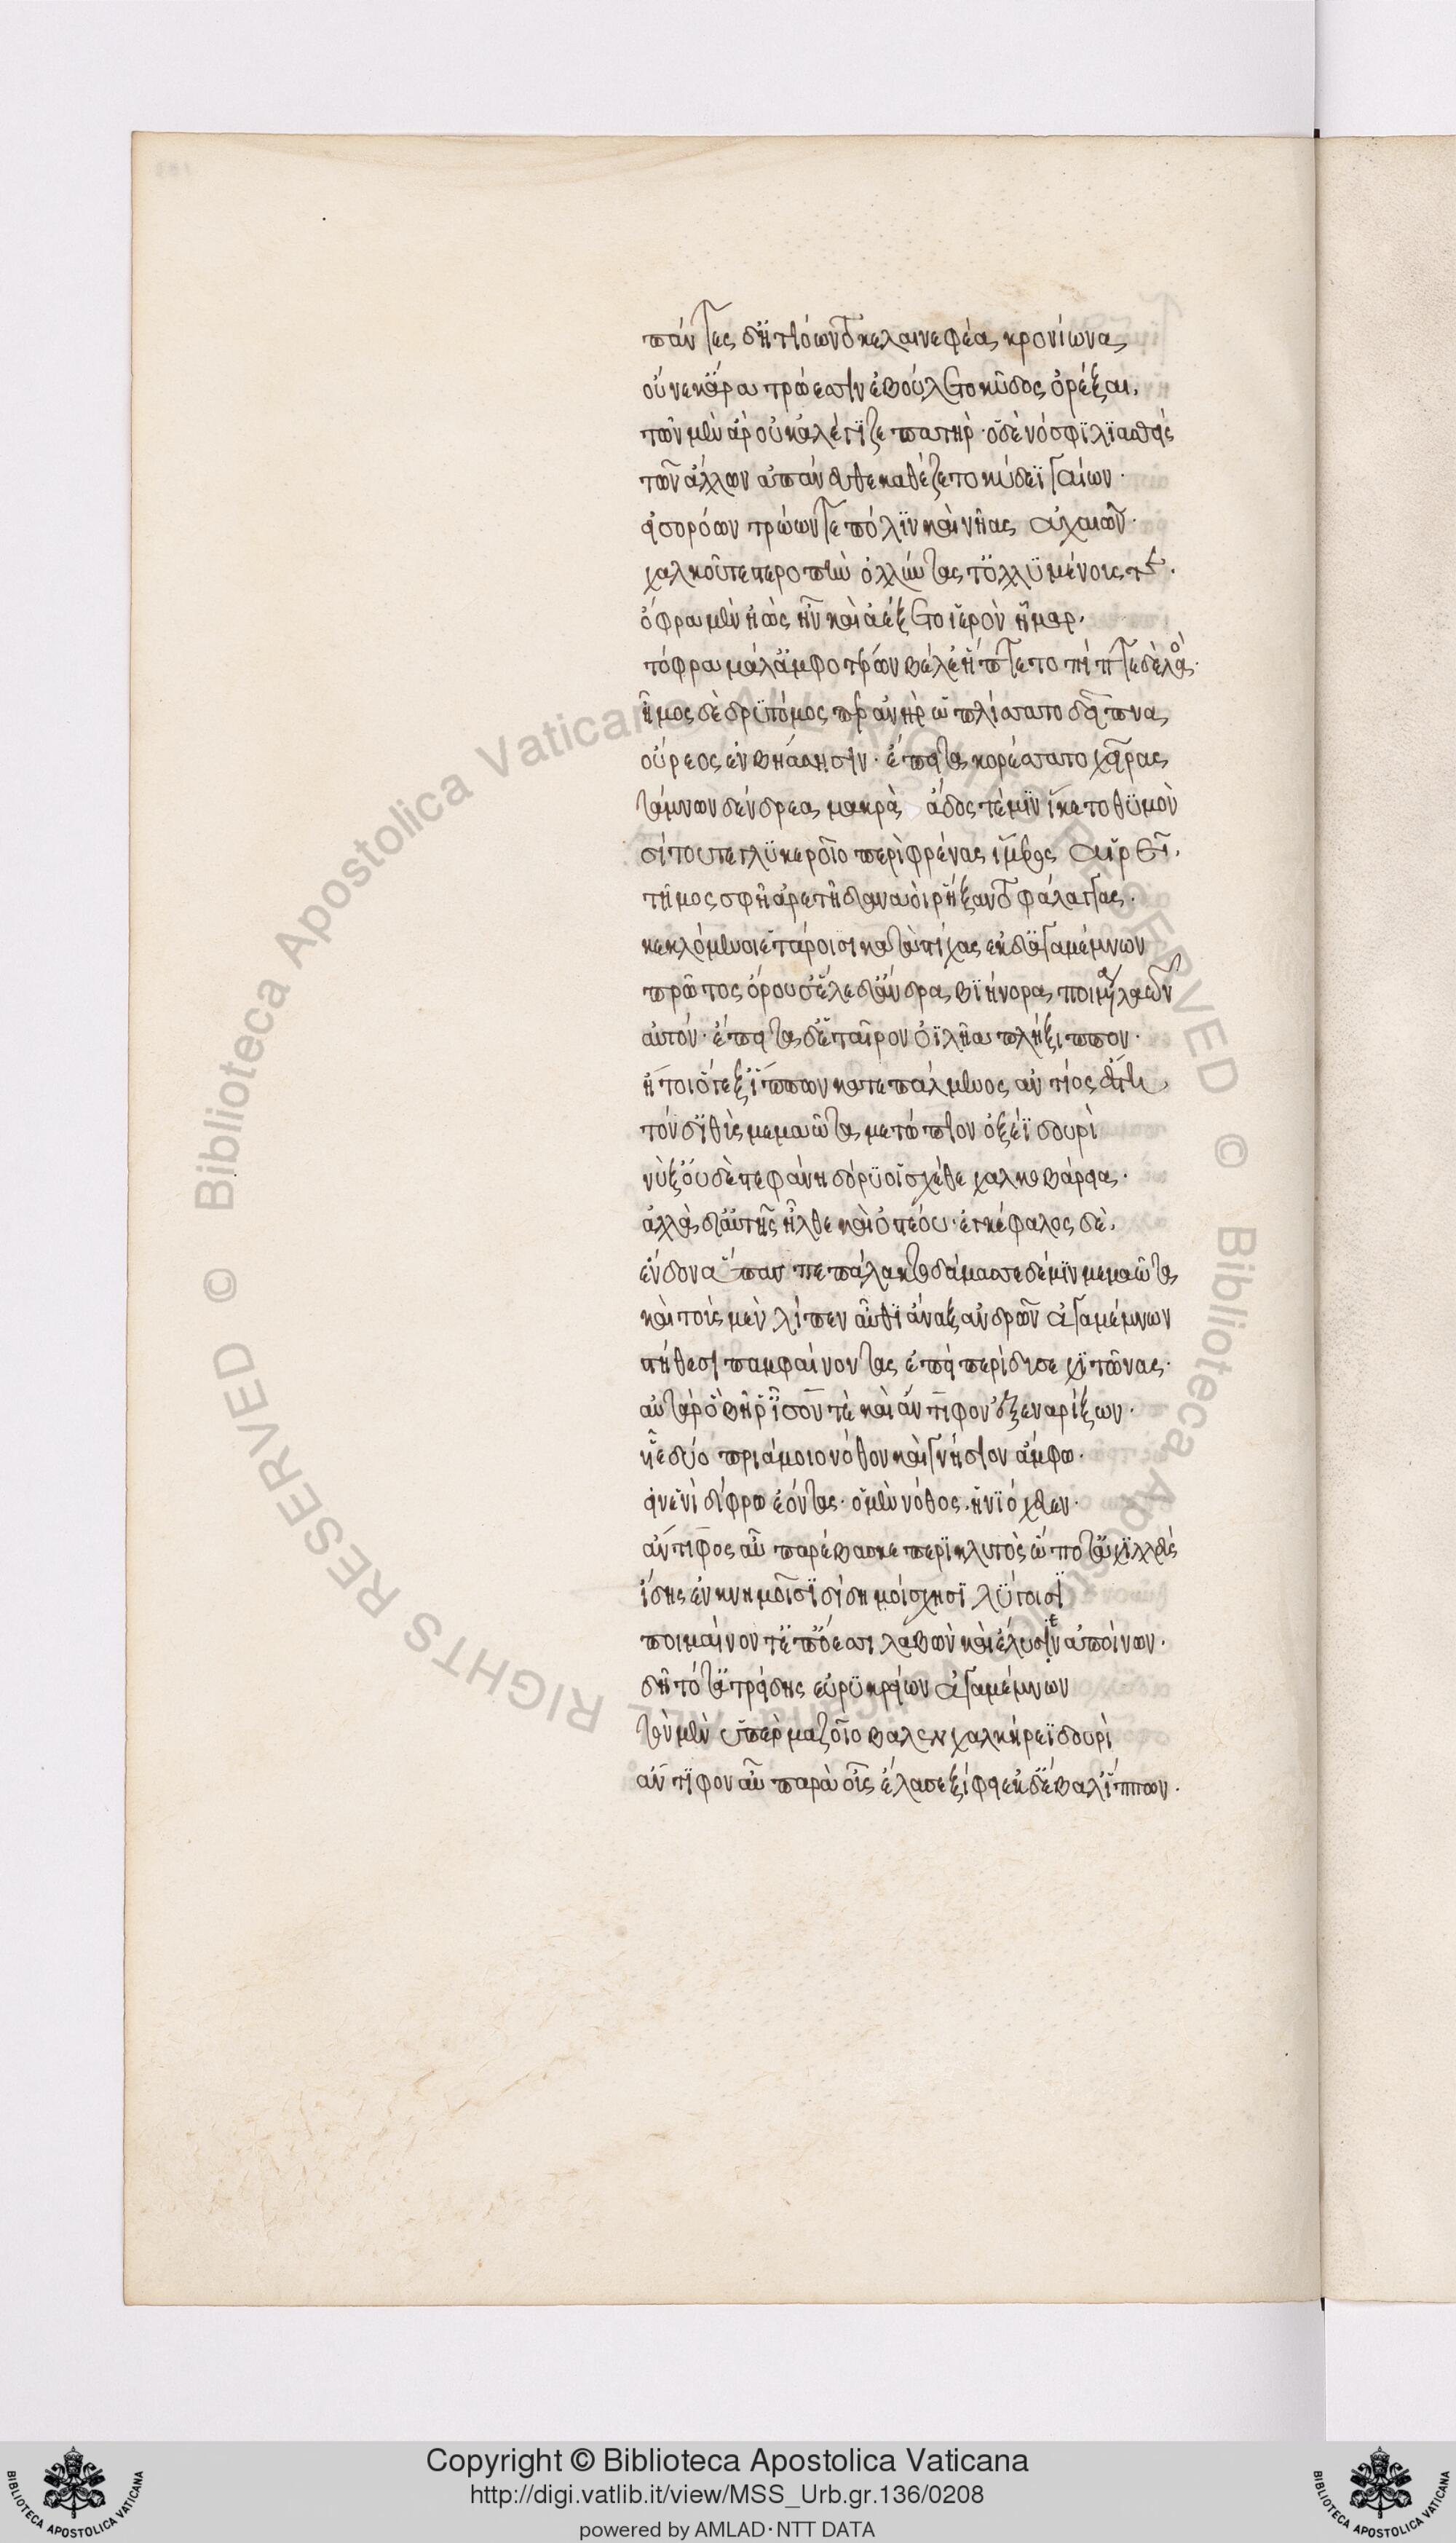 πάντες δ' ἠτιόωντο κελαινεφέα κρονίωνα
οὕνεκ' ἄρα τρώεσσιν ἐβούλετο κῦδος ὀρέξαι.
τῶν μὲν ἄρ' οὐκ ἀλέγιζε πατὴρ· ὁ δὲ νόσφι λιασθεὶς
τῶν ἄλλων ἀπάνευθε καθέζετο κύδεϊ γαίων·
εἰσορόων τρώων τε πόλιν καὶ νῆας ἀχαιῶν·
χαλκοῦ τε στεροπὴν ὀλλύντας τ' ὀλλυμένους τε.
ὄφρα μὲν ἠὼς ἦν καὶ ἀέξετο ἱερὸν ἦμαρ.
τόφρα μάλ' ἀμφοτέρων βέλε' ἥπτετο πίπτε δὲ λαός.
ἦμος δὲ δρυτόμος περ ἀνὴρ ὡπλίσσατο δεῖπνα
οὔρεος ἐν βήσσησιν· ἐπεί τ' ἐκορέσσατο χεῖρας
τάμνων δένδρεα μακρὰ ἅδος τέ μιν ἵκετο θυμὸν
σίτου τε γλυκεροῖο περὶ φρένας ἵμερος αἱρεῖ.
τῆμος σφῇ ἀρετῇ δαναοὶ ῥήξαντο φάλαγγας.
κεκλόμενοι ἑτάροισι κατὰ στίχας ἐκ δ' ἀγαμέμνων
πρῶτος ὄρουσ' ἕλε δ' ἄνδρα βιήνορα ποιμένα λαῶν
αὐτόν· ἔπειτα δ' ἑταῖρον ὀϊλῆα πλήξιππον·
ἤτοι ὅ γ' ἐξ ἵππων κατεπάλμενος ἀντίος ἔστη
τὸν δ' ἰθὺς μεμαῶτα μετώπιον ὀξέϊ δουρὶ
νύξ' οὐδὲ στεφάνη δόρυ οἱ σχέθε χαλκοβάρεια·
ἀλλὰ δι' αὐτῆς ἦλθε καὶ ὀστέου· ἐγκέφαλος δὲ.
ἔνδον ἅπας πεπάλακτο δάμασσε δέ μιν μεμαῶτα
καὶ τοὺς μὲν λίπεν αὖθι ἄναξ ἀνδρῶν ἀγαμέμνων
στήθεσι παμφαίνοντας ἐπεὶ περίδυσε χιτῶνας·
αὐτὰρ ὃ βῆ ῥ' ἶσόν τε καὶ ἄντιφον ἐξεναρίξων·
υἷε δύο πριάμοιο νόθον καὶ γνήσιον ἄμφω.
εἰν ἑνὶ δίφρῳ ἐόντας· ὁ μὲν νόθος ἡνιόχευεν·
ἄντιφος αὖ παρέβασκε περικλυτὸς ὥ ποτ' ἀχιλλεὺς
ἴδης ἐν κνημοῖσι δίδη μόσχοισι λύγοισι
ποιμαίνοντ' ἐπ' ὄεσσι λαβὼν καὶ ἔλυσεν ἀποίνων.
δὴ τότε γ' ἀτρείδης εὐρυκρείων ἀγαμέμνων
τὸν μὲν ὑπὲρ μαζοῖο βάλεν χαλκήρεϊ δουρὶ
ἄντιφον αὖ παρὰ οὖς ἔλασε ξίφει ἐκ δ' ἔβαλ' ἵππων.
Copyright © Biblioteca Apostolica Vaticana
http://digi.vatlib.it/view/MSS_Urb.gr.136/0208
powered by AMLAD·NTT DATA